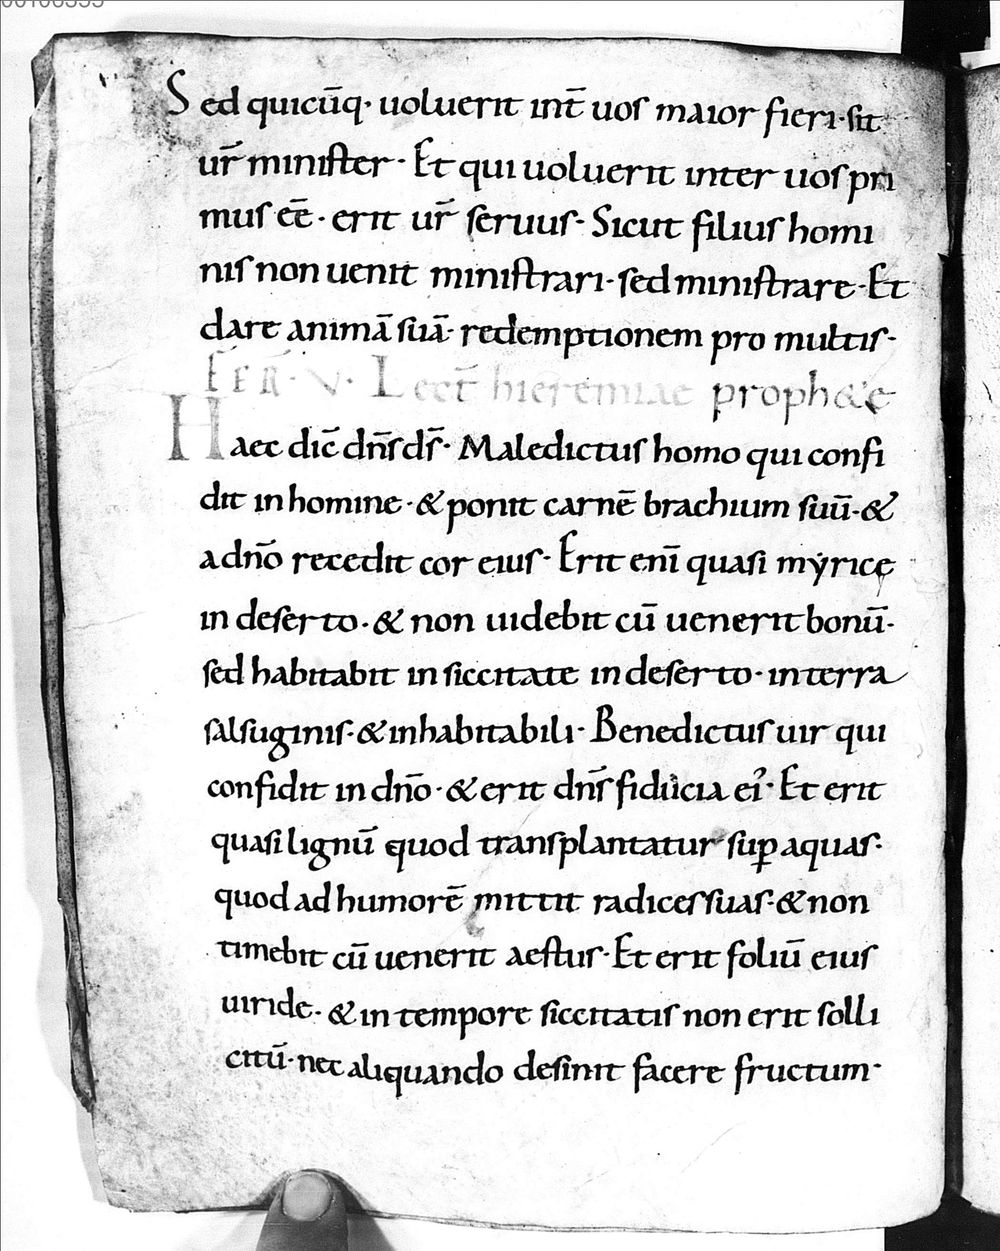 Sed quicūq· uoluerit int̄ uos maior fieri· sit
ur̄ minister· Et qui uoluerit inter uos pri
mus eē· erit ur̄ seruus· Sicut filius homi
nis non uenit ministrari· sed ministrare· Et
dare animā suā· redemptionem pro multis·
FER̄· V· Lect̄ hieremiae proph&ę
Haec dic̄ dn̄s ds̄· Maledictus homo qui confi
dit in homine· & ponit carnē brachium suū· &
a dn̄o recedit cor eius· Erit enī quasi myricę
in deserto· & non uidebit cū uenerit bonū·
sed habitabit in siccitate in deserto· in terra
salsuginis· & inhabitabili· Benedictus uir qui
confidit in dn̄o· & erit dn̄s fiducia ei᾽· Et erit
quasi lignū quod transplantatur sup̱ aquas·
quod ad humorē mittit radices suas· & non
timebit cū uenerit aestus· Et erit foliū eius
uiride· & in tempore siccitatis non erit solli
citū· nec aliquando desinit facere fructum·